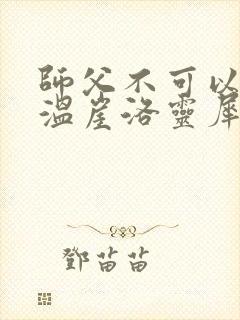 師父不可以
溫崖洛靈犀
鄧苗苗